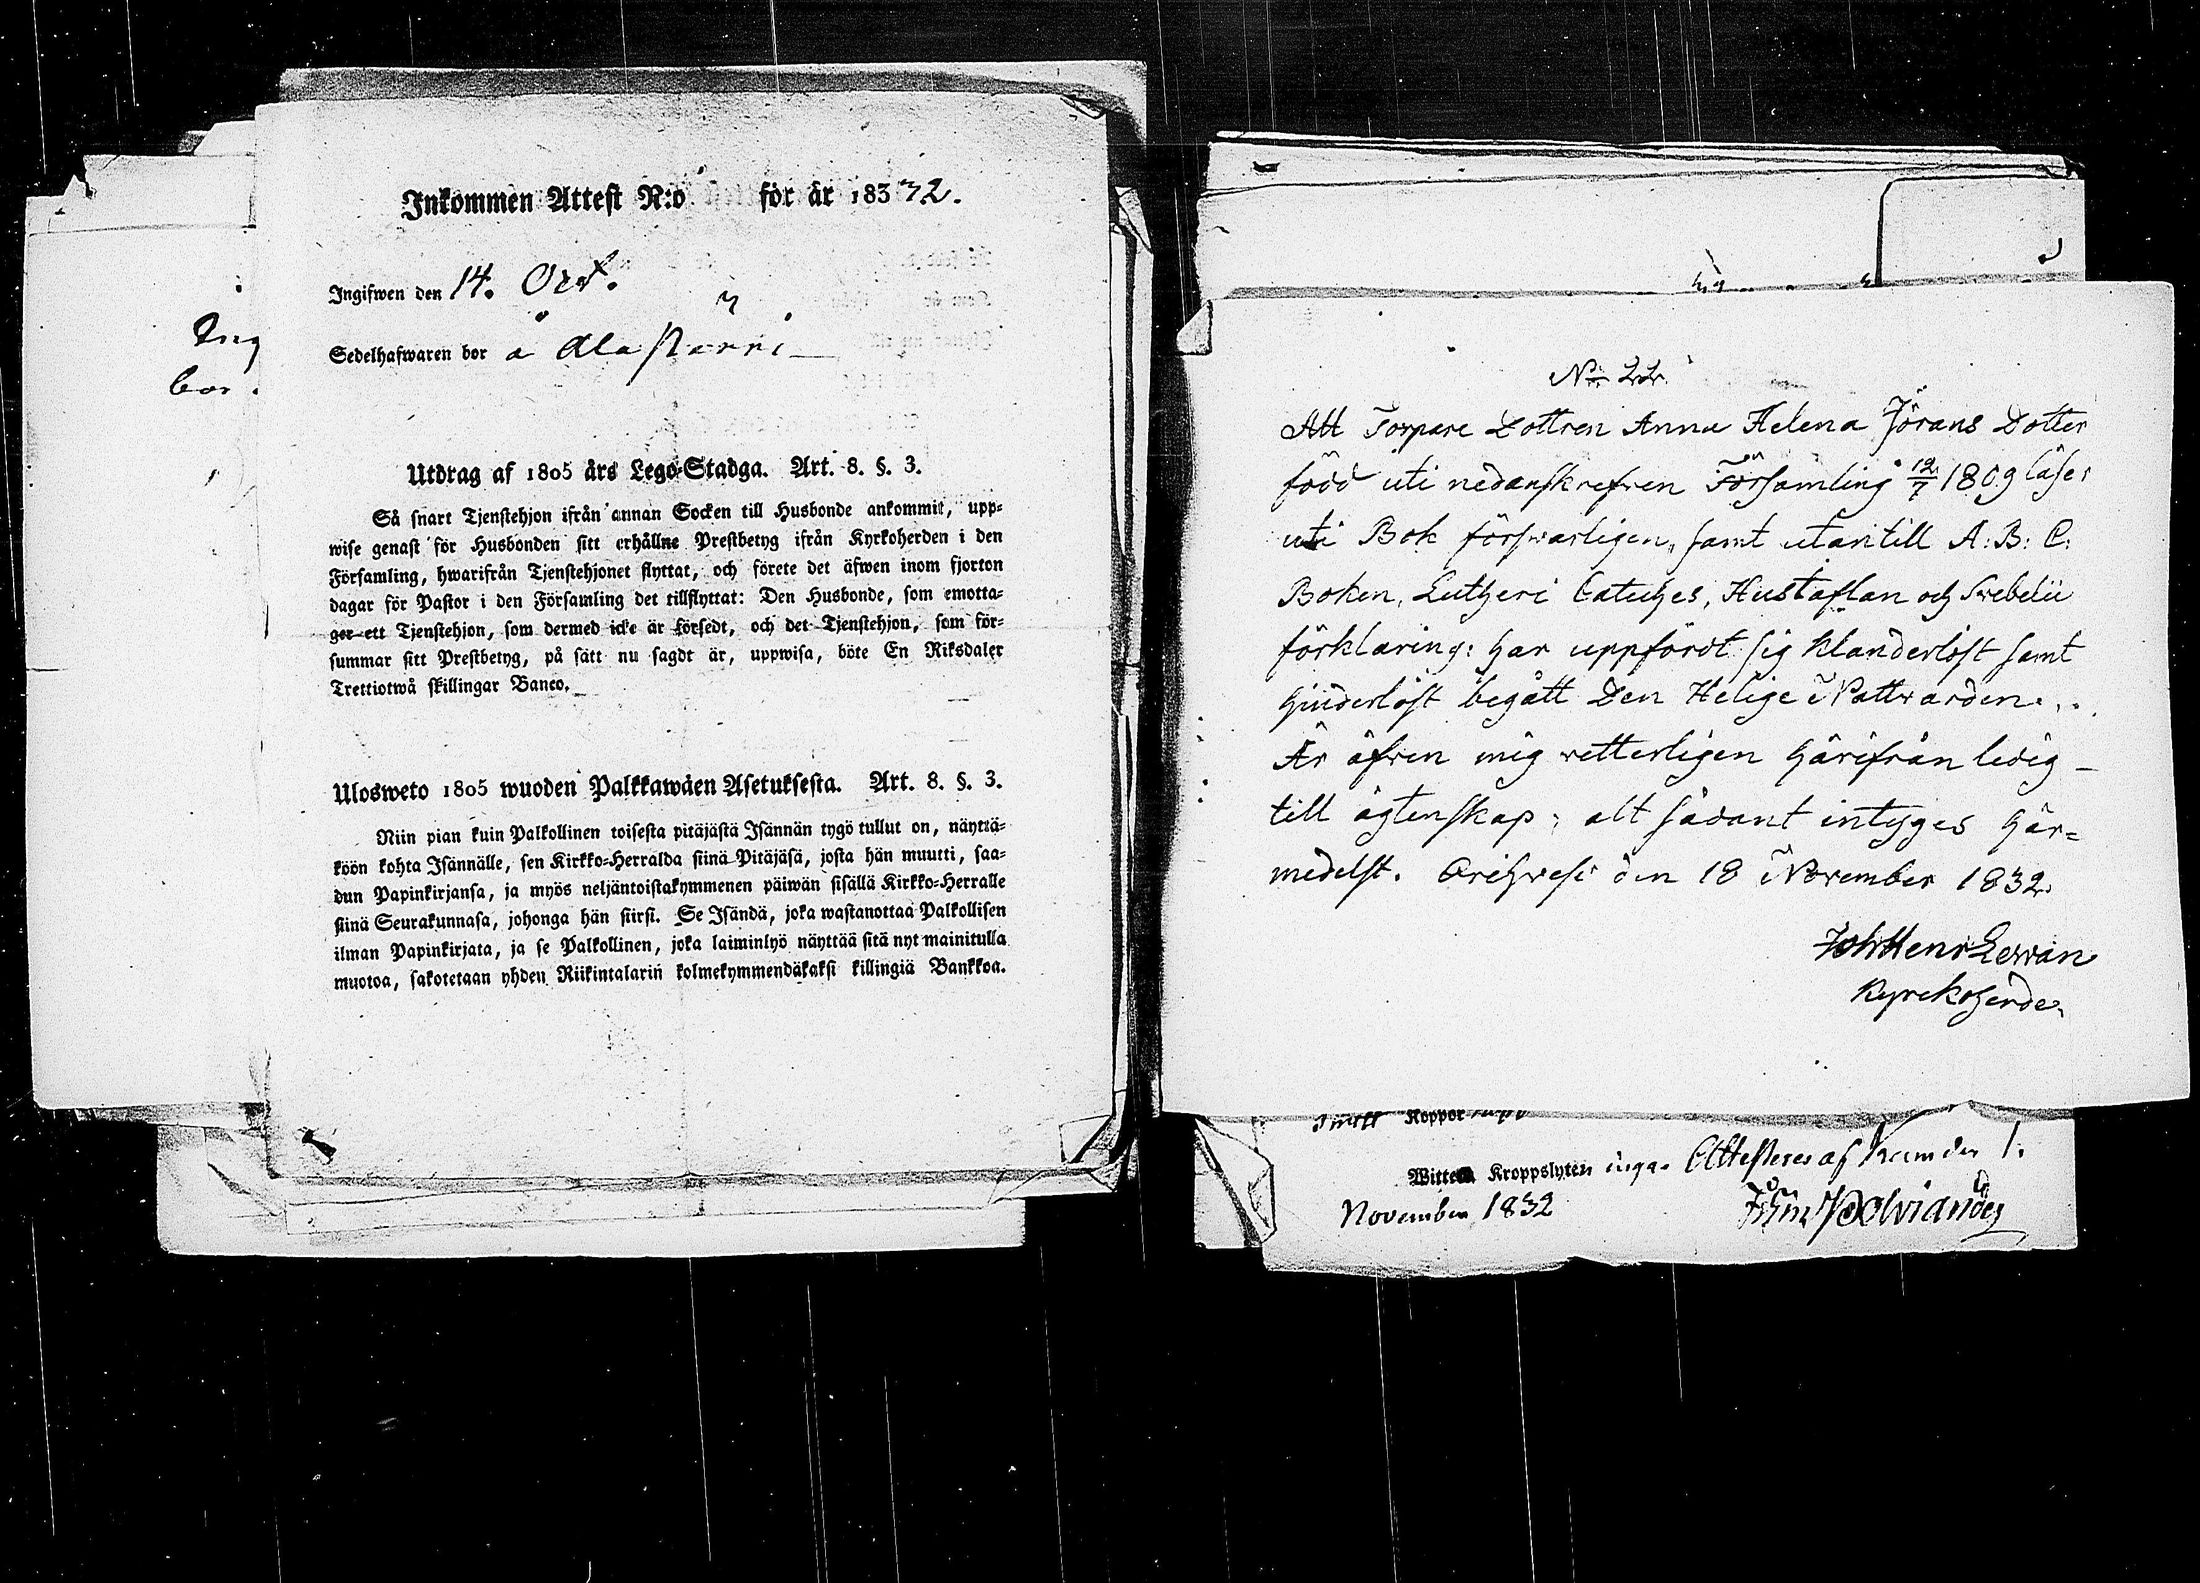 Inkommen Attest N:o för år 18332.
Ingifwen den 14. Oct.
Sedelhafwaren bor å Ala
Utdrag af 1805 års Lego-Stadga. Art. 8. §. 3.
Så snart Tjenstehjon ifrån annan Socken till Husbonde ankommit, upp-
wise genast för Husbonden sitt erhållne Prestbetyg ifrån Kyrkoherden i den
Församling, hwarifrån Tjenstehjonet flyttat, och förete det äfwen inom fjorton
dagar för Pastor i den Församling det tillflyttat: Den Husbonde, som emotta-
ger ett Tjenstehjon, som dermed icke är försedt, och det Tjenstehjon, som för-
summar sitt Prestbetyg, på sätt nu sagdt är, uppwisa, böte En Riksdaler
Trettiotwå skillingar Banco.
Ulosweto 1805 wuoden Palkkawäen Asetuksesta. Art. 8. §. 3.
Niin pian kuin Palkollinen toisesta pitäjästä Isännän tygö tullut on, näyttä-
köön kohta Isännälle, sen Kirkko-Herralda siinä Pitäjäsä, josta hän muutti, saa-
dun Papinkirjansa, ja myös neljäntoistakymmenen päiwän sisällä Kirkko-Herralle
siinä Seurakunnasa, johonga hän siirsi. Se Isändä, joka wastanottaa Palkollisen
ilman Papinkirjata, ja se Palkollinen, joka laiminlyö näyttää sitä nyt mainitulla
muotoa, sakotetaan yhden Riikintalarin kolmekymmendäkaksi killingiä Bankkoa.
Ing
bor
No 22
Att Torpare Dottren Anna Helena Jörans Dotter
född uti nedanskrefwen Församling 12/7 1809 läser
uti Bok förswarligen, samt utantill A: B: C:
Boken, Lutheri Catches, Hustaflan och Swebelii
förklaring: har uppfördt sig klanderlöst samt
hinderlöst begått Den Helige Nattwarden.
Är äfwen mig vetterligen härifrån ledig
till ägtenskap; alt sådant intyges här=
medelst. Orihwesi den 18 November 1832
Joh Henr Lewan
Kyrckoherde
Koppor
Witterl. Kroppslyten inga. Attesteres af Kumder 1.
November 1832